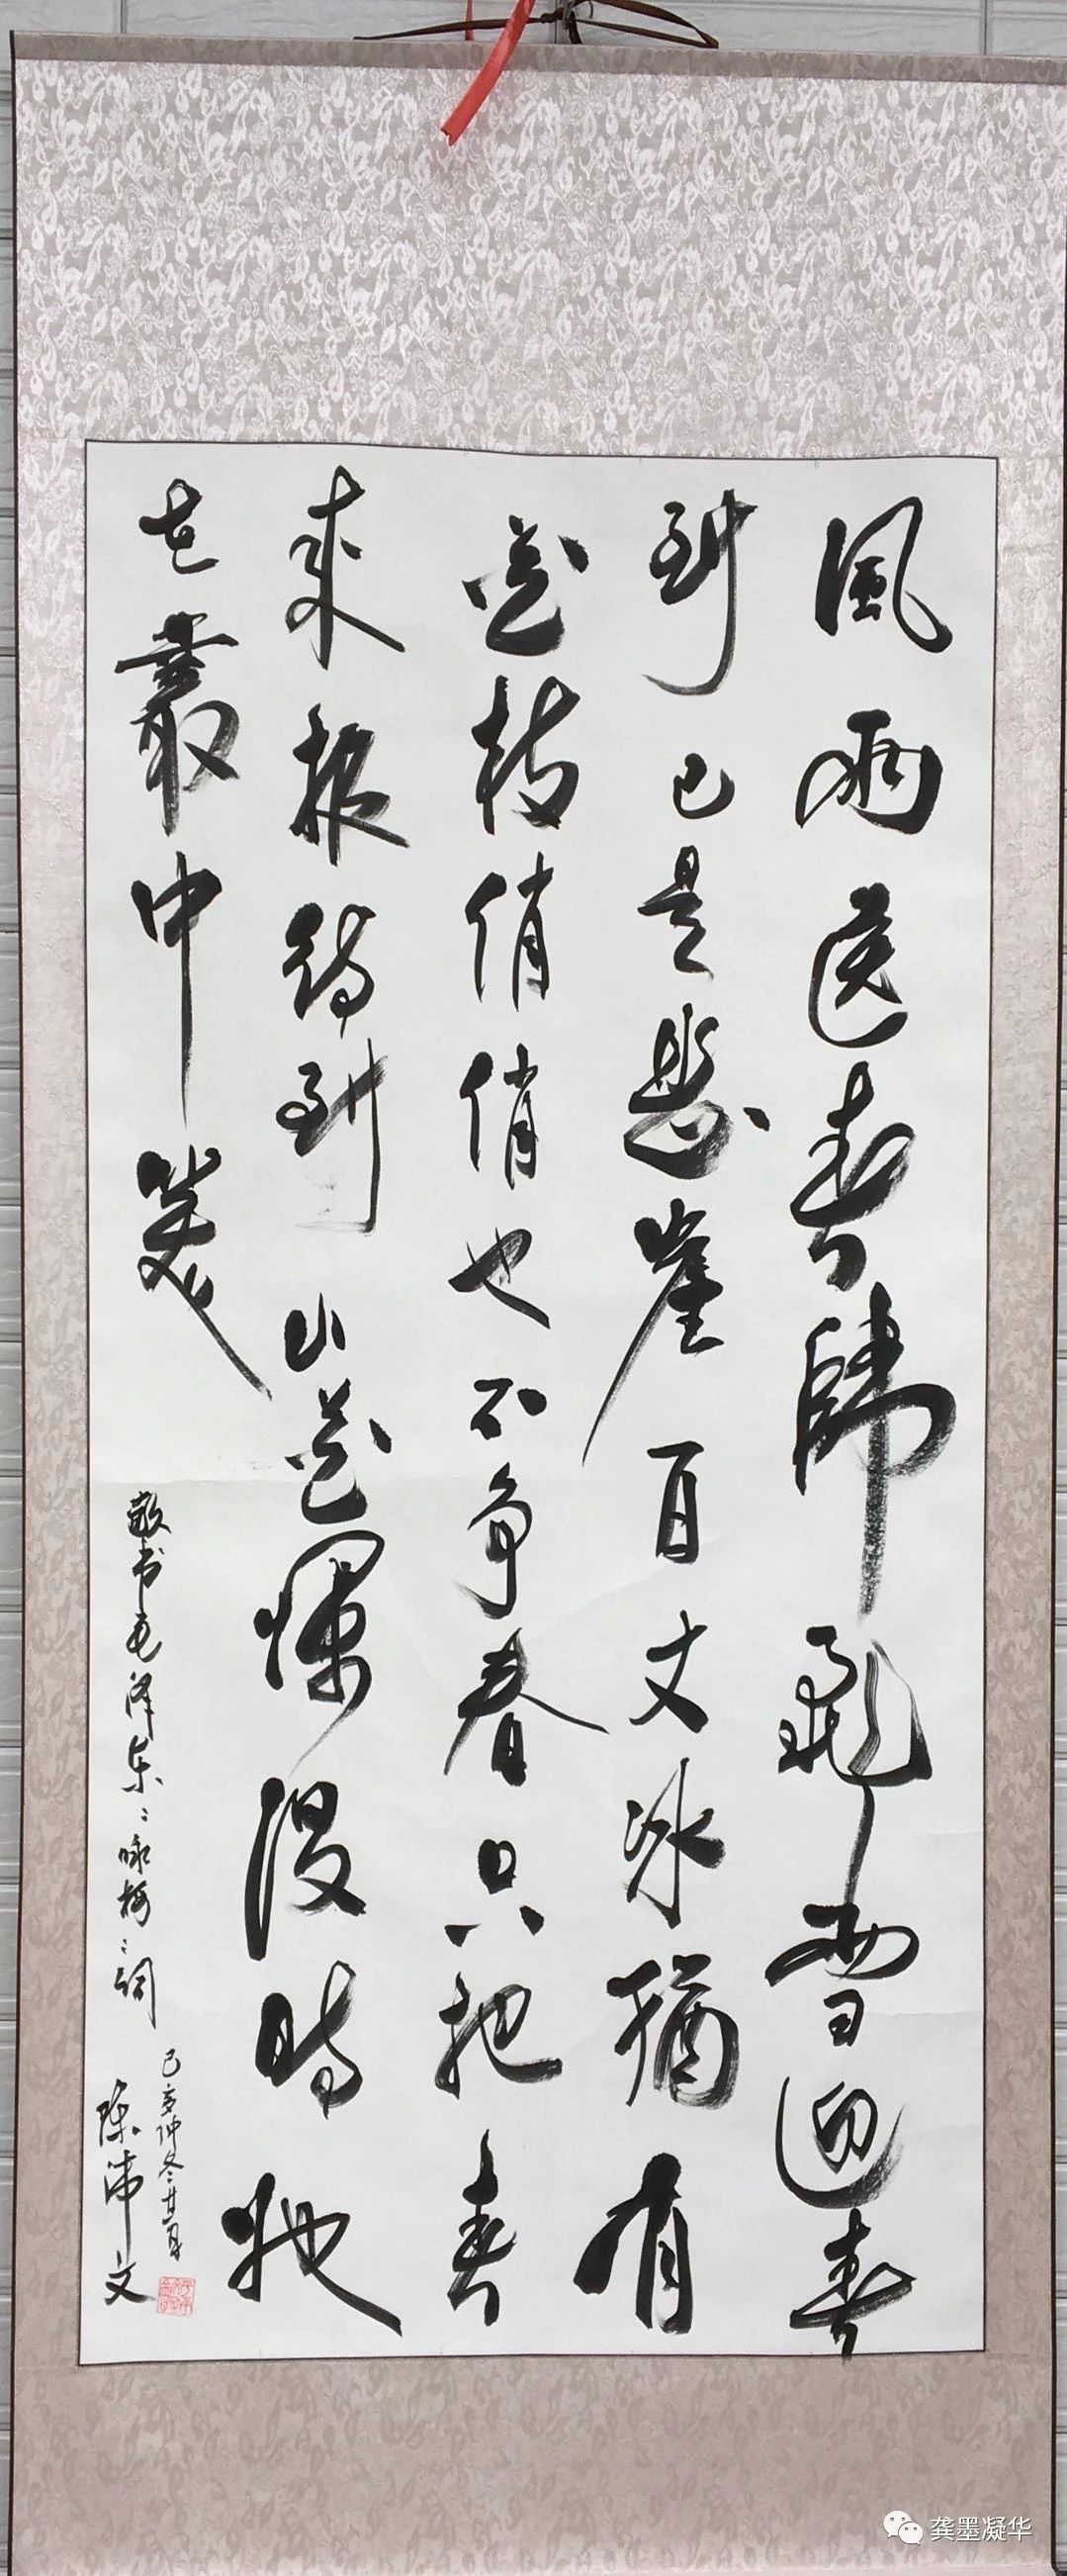 風雨送春歸飛雪迎春
到已是懸崖百丈冰猶有
花枝俏俏也不争春只把春
來报待到山花爛漫時她
在叢中笑
敬书毛泽东咏梅词
己亥仲冬
陈沛文
龚墨凝华